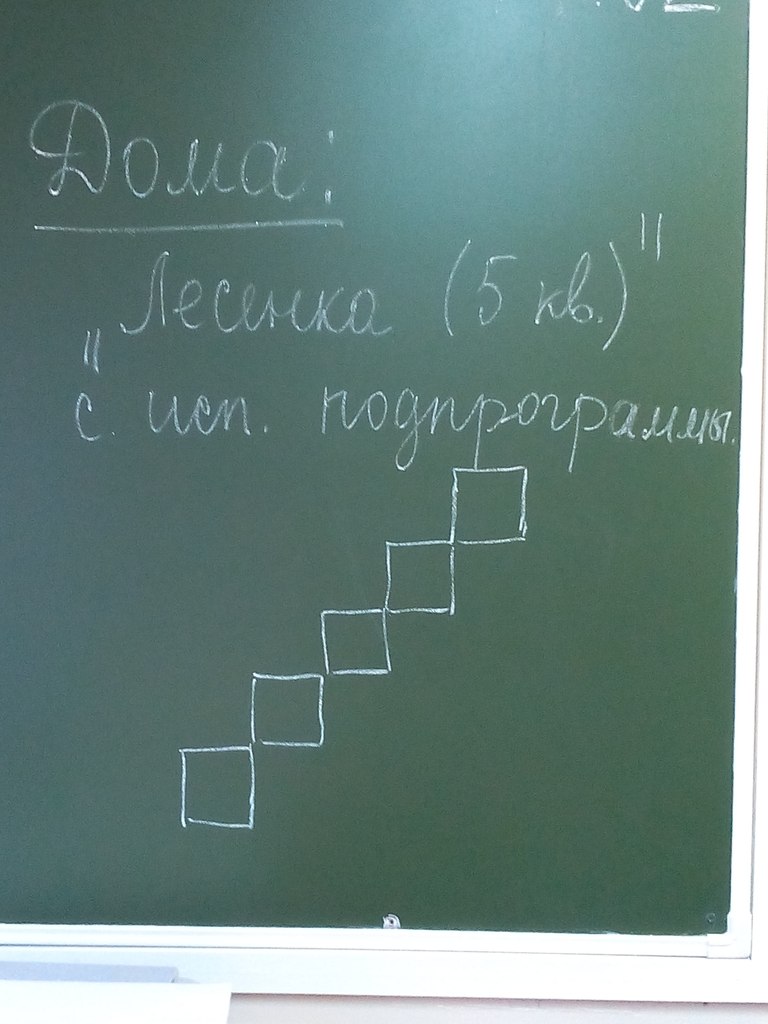 Дома:
„Лесенка (5 кв.)"
с. исп. подпрограммы.